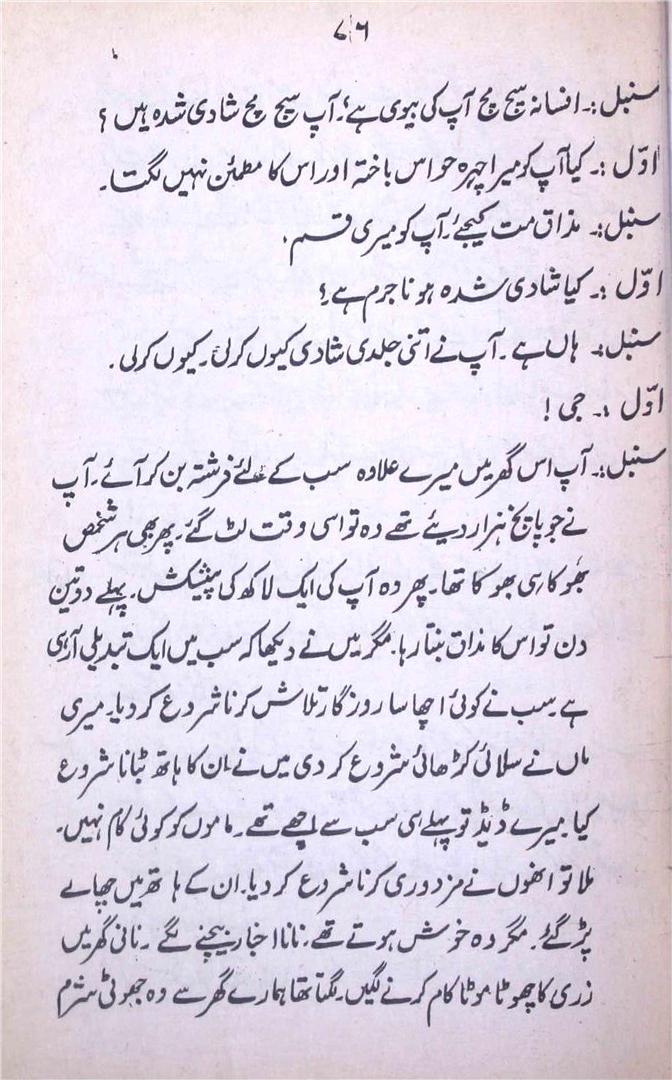 ۷۶
سنبل:۔ افسانہ سچ مچ آپ کی بیوی ہے؟۔ آپ سچ مچ شادی شدہ ہیں؟
اوّل:۔ کیا آپ کو میرا چہرہ حواس باختہ اور اس کا مطمئن نہیں لگتا۔
سنبل:۔ مذاق مت کیجئے۔ آپ کو میری قسم۔
اوّل:۔ کیا شادی شدہ ہونا جرم ہے؟
سنبل:۔ ہاں ہے۔ آپ نے اتنی جلدی شادی کیوں کرلی۔ کیوں کرلی۔
اوّل:۔ جی!
سنبل:۔ آپ اس گھر میں میرے علاوہ سب کے لئے فرشتہ بن کر آئے۔ آپ
نے جو پانچ ہزار دیئے تھے وہ تو اسی وقت لٹ گئے۔ پھر بھی ہر شخص
بھوکا ہی بھوکا تھا۔ پھر وہ آپ کی ایک لاکھ کی پیشکش۔ پہلے دو تین
دن تو اس کا مذاق بنتا رہا۔ مگر میں نے دیکھا کہ سب میں ایک تبدیلی آ رہی
ہے۔ سب نے کوئی اچھا سا روزگار تلاش کرنا شروع کر دیا۔ میری
ماں نے سلائی کڑھائی شروع کر دی میں نے ان کا ہاتھ بٹانا شروع
کیا۔ میرے ڈیڈ تو پہلے ہی سب سے اچھے تھے۔ ماموں کو کوئی کام نہیں۔
ملا تو انھوں نے مزدوری کرنا شروع کر دیا۔ ان کے ہاتھ میں چھالے
پڑ گئے۔ مگر وہ خوش ہوتے تھے۔ نانا اخبار بیچنے لگے۔ نانی گھر میں
زری کا چھوٹا موٹا کام کرنے لگیں۔ لگتا تھا ہمارے گھر سے وہ جھوٹی شرم